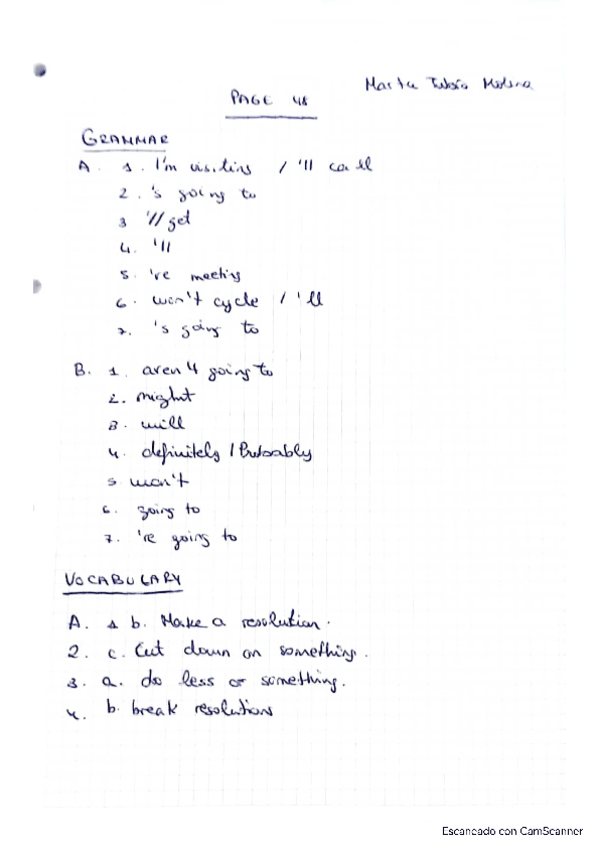 Marta Molina
PAGE 48
GRAMMAR
A. 1. I'm visiting / 'll call
2. 's going to
3 'll get
4. 'll
5. 're meeting
6. won't cycle / 'll
7. 's going to
B. 1. aren't going to
2. might
3. will
4. definitely / Probably
5 won't
6. going to
7. 're going to
VOCABULARY
A. 1 b. Make a resolution.
2. c. Cut down on something.
3. a. do less of something.
4. b. break resolutions
Escaneado con CamScanner